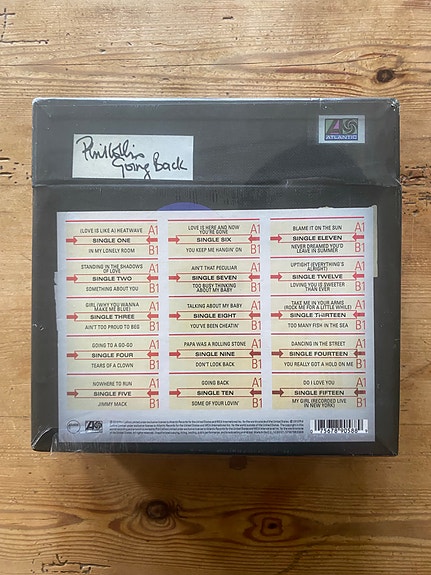 Phil Collins
Going Back
ATLANTIC
(LOVE IS LIKE A) HEATWAVE
A1
SINGLE ONE
IN MY LONELY ROOM
B1
STANDING IN THE SHADOWS
OF LOVE
A1
SINGLE TWO
SOMETHING ABOUT YOU
B1
GIRL (WHY YOU WANNA
MAKE ME BLUE)
A1
SINGLE THREE
AIN'T TOO PROUD TO BEG
B1
GOING TO A GO-GO
A1
SINGLE FOUR
TEARS OF A CLOWN
B1
NOWHERE TO RUN
A1
SINGLE FIVE
JIMMY MACK
B1
LOVE IS HERE AND NOW
YOU'RE GONE
A1
SINGLE SIX
YOU KEEP ME HANGIN' ON
B1
AIN'T THAT PECULIAR
A1
SINGLE SEVEN
TOO BUSY THINKING
ABOUT MY BABY
B1
TALKING ABOUT MY BABY
A1
SINGLE EIGHT
YOU'VE BEEN CHEATIN'
B1
PAPA WAS A ROLLING STONE
A1
SINGLE NINE
DON'T LOOK BACK
B1
GOING BACK
A1
SINGLE TEN
SOME OF YOUR LOVIN'
B1
BLAME IT ON THE SUN
A1
SINGLE ELEVEN
NEVER DREAMED YOU'D
LEAVE IN SUMMER
B1
UPTIGHT (EVERYTHING'S
ALRIGHT)
A1
SINGLE TWELVE
LOVING YOU IS SWEETER
THAN EVER
B1
TAKE ME IN YOUR ARMS
(ROCK ME FOR A LITTLE WHILE)
A1
SINGLE THIRTEEN
TOO MANY FISH IN THE SEA
B1
DANCING IN THE STREET
A1
SINGLE FOURTEEN
YOU REALLY GOT A HOLD ON ME
B1
DO I LOVE YOU
A1
SINGLE FIFTEEN
MY GIRL (RECORDED LIVE
IN NEW YORK)
B1